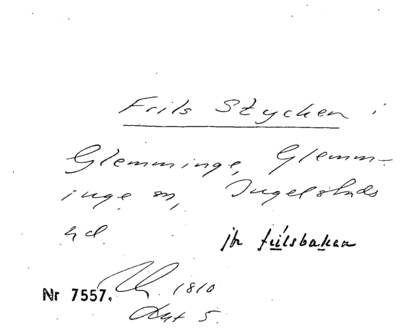 Frils Stycken i
Glemminge, Glemm-
inge sn, Ingelstads
hd.
jfr frilsbacken
Nr 7557. 1810
Akt 5.